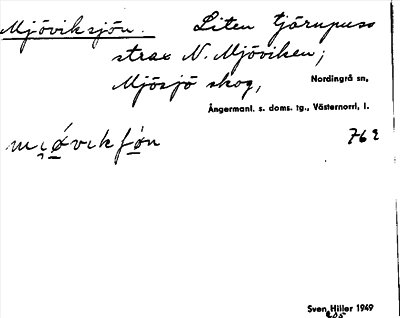 Mjöviksjön. Liten tjärnpuss
strax N. Mjöviken;
Mjösjö skog, Nordingrå sn,
Ångermanl. s. doms. tg., Västernorrl. l.
762
Sven Hiller 1949